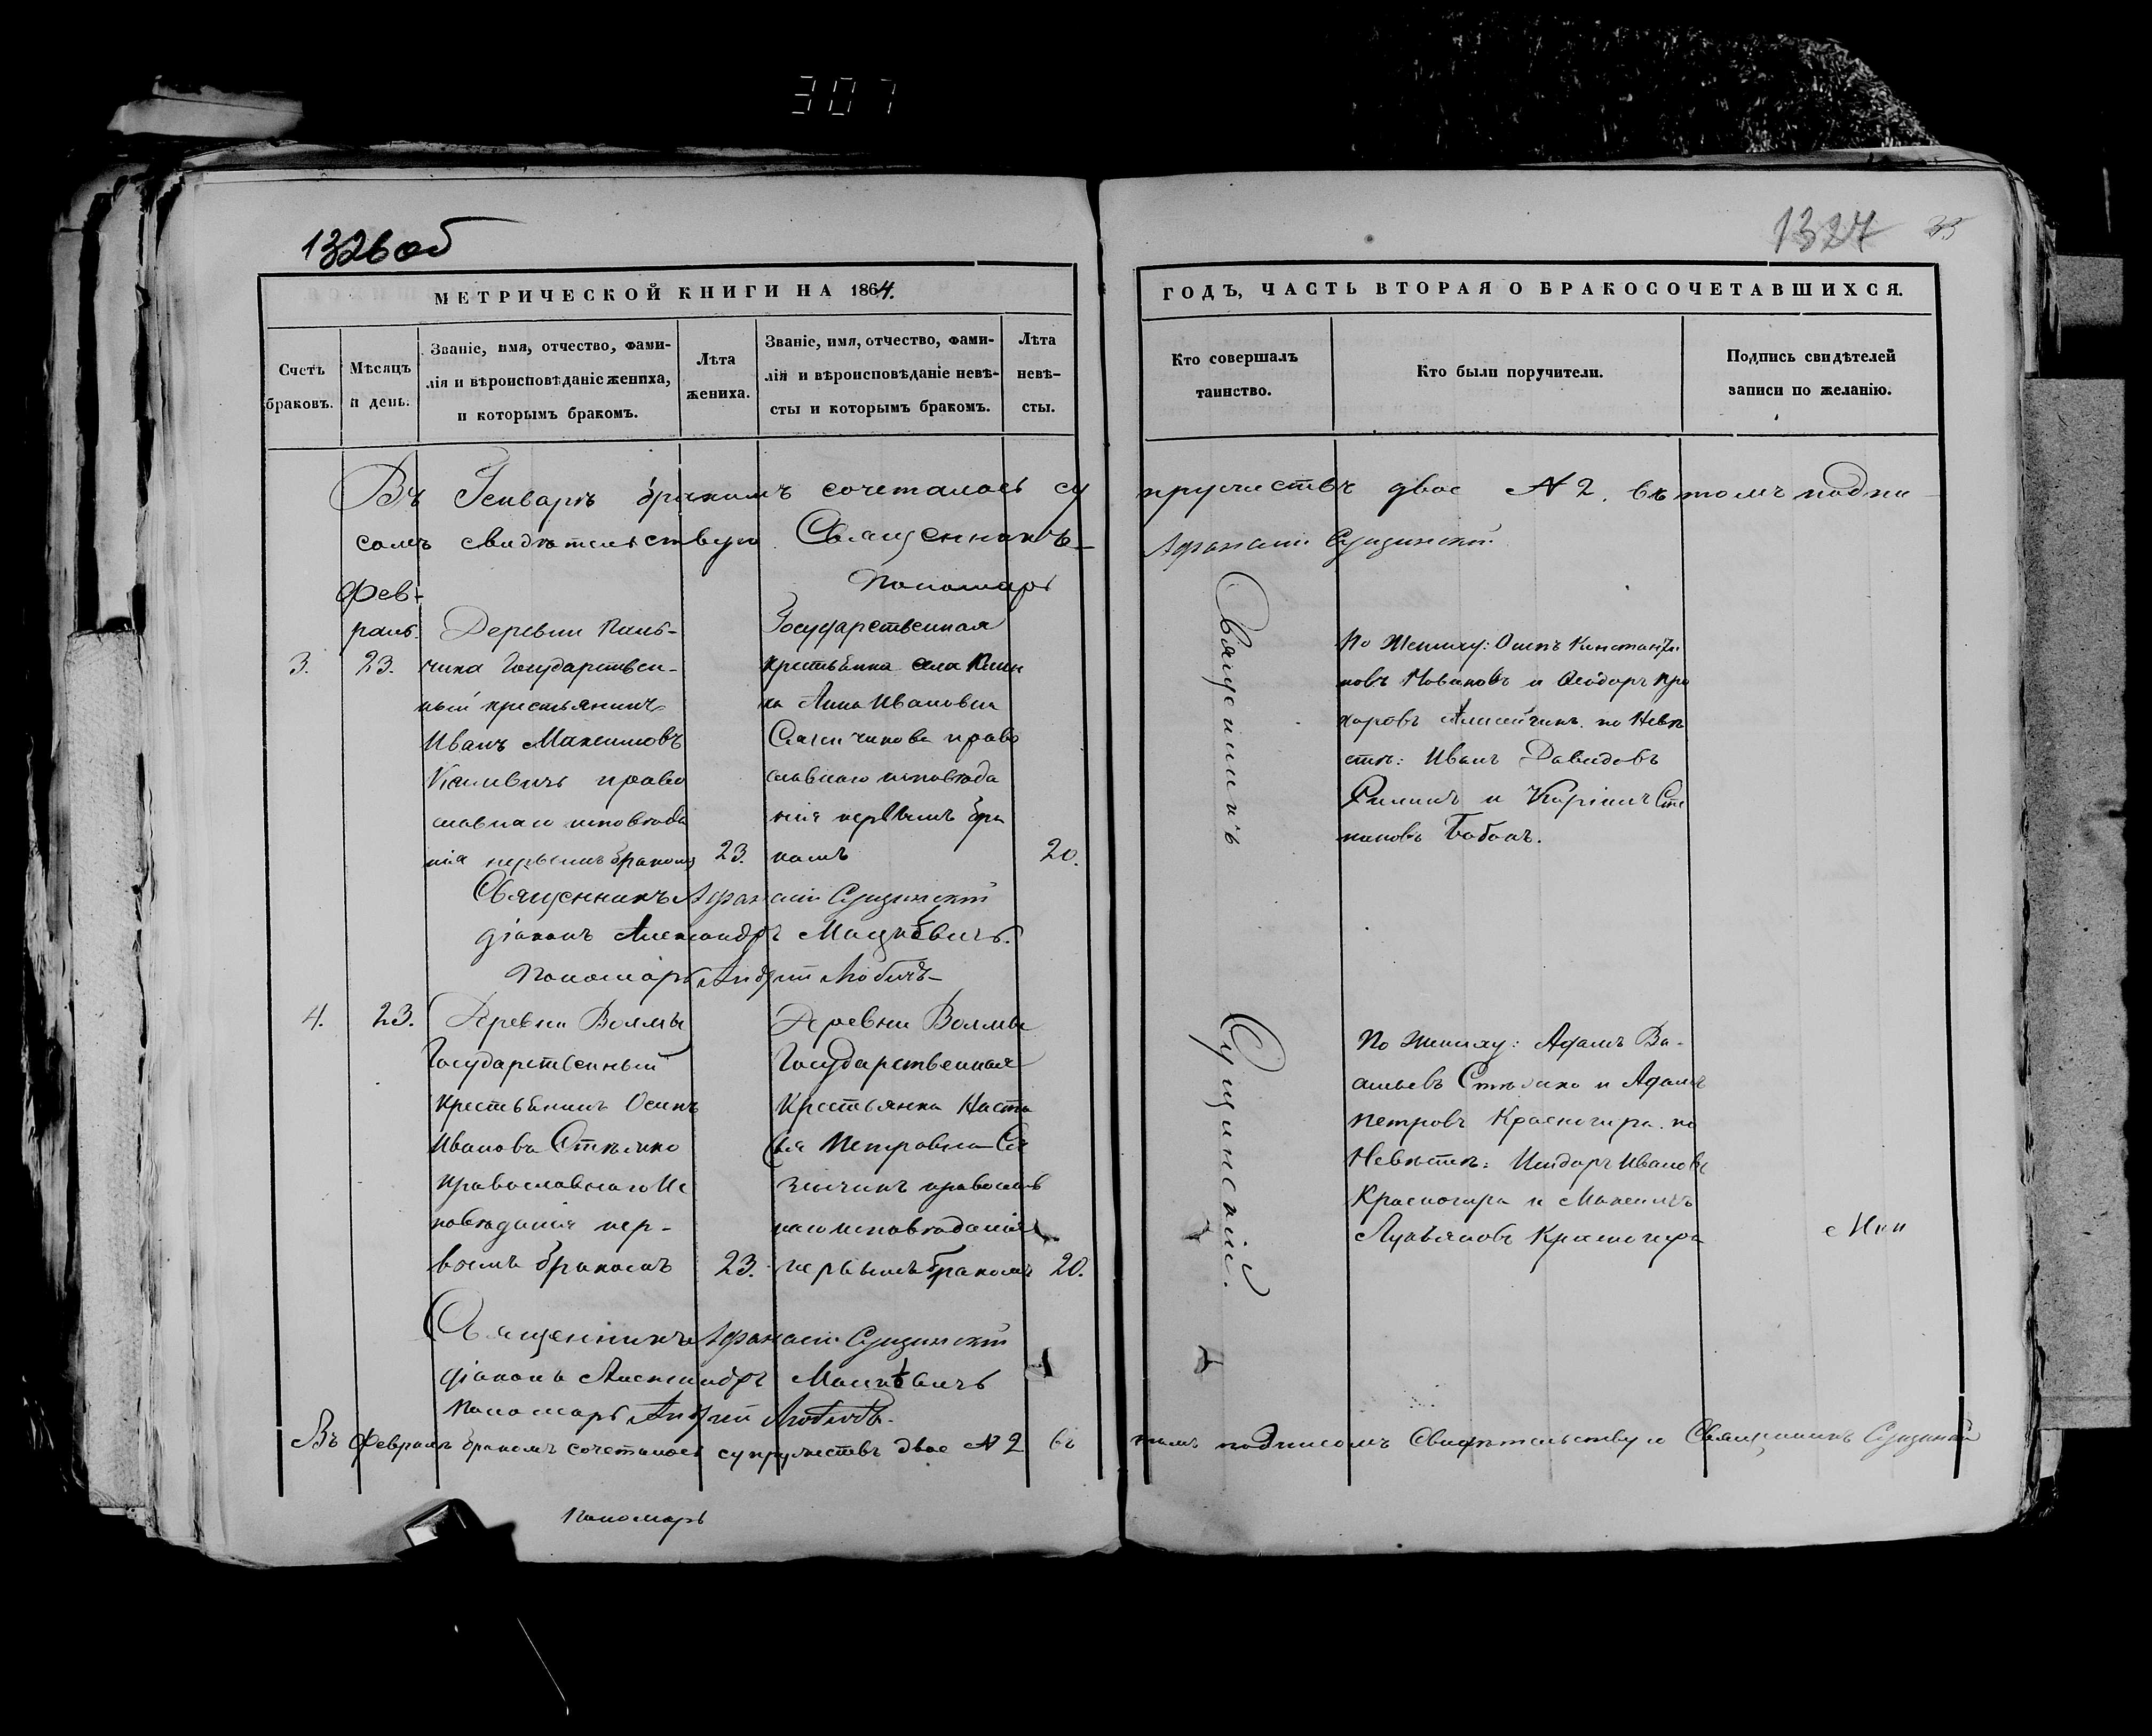 307
1326 об
1327
33
МЕТРИЧЕСКОЙ КНИГИ НА 1864.
Счетъ браковъ.
Мѣсяцъ и день.
Званіе, имя, отчество, фами-
лія и вѣроисповѣданіе жениха,
и которымъ бракомъ.
Лѣта жениха.
Званіе, имя, отчество, фами-
лія и вѣроисповѣданіе невѣ-
сты и которымъ бракомъ.
Лѣта невѣ-
сты.
ГОДЪ, ЧАСТЬ ВТОРАЯ О БРАКОСОЧЕТАВШИХСЯ.
Кто совершалъ
таинство.
Кто были поручители.
Подпись свидѣтелей
записи по желанію.
Въ Генварѣ бракомъ сочеталось су
пружествъ двое N 2. въ томъ подпи
сомъ свидѣтельствую Священникъ
Афанасій Сущинскій
Пономарь
Фев-
раль
3.
23.
Деревни
чика Государствен-
ный крестьянинъ
Иванъ Максимовъ
право
славнаго исповѣда
нія первымъ бракомъ
23.
Государственная
крестьянка села
ка Анна Ивановна
право
славнаго исповѣда
нія первымъ бра
комъ
20.
Священникъ
Сущинскій.
По Жениху: Осипъ Константи
новъ Новиковъ и Ѳеодоръ Про
хоровъ по Невѣ
стѣ: Иванъ Давидовъ
и Сте
пановъ Бобокъ.
Священникъ Афанасій Сущинскій
діаконъ Александръ Мацкевичъ.
Пономарь Андрей Любичъ
4.
23.
Деревни Волмы
Государственный
Крестьянинъ Осипъ
Ивановъ
Православнаго Ис
повѣданія пер-
вымъ бракомъ
23.
Деревни Волмы
Государственная
Крестьянка Наста
сья Петровна
православ
наго исповѣданія
первымъ бракомъ
20.
По жениху: Адамъ Ва-
сильевъ и Адамъ
Петровъ Красногира. по
Невѣстѣ: Исидоръ Ивановъ
Красногира и Максимъ
Лукьяновъ Красногира
Священникъ Афанасій Сущинскій
діаконъ Александръ Мацкевичъ
Пономарь Андрей Любичъ.
Въ Февралѣ бракомъ сочеталось супружествъ двое N 2 въ
томъ подписомъ Свидѣтельствую Священникъ Сущинскій
Пономарь